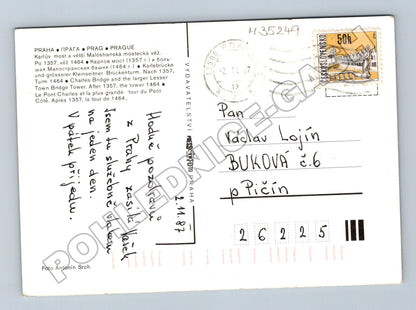 M 35249
PRAHA • ПРАГА • PRAG • PRAGUE
Karlův most a větší Malostranská mostecká věž.
Po 1357, věž 1464 • Карлов мост (1357 г.) и боль-
шая Малостранская башня (1464 г.) • Karlsbrücke
und grösserer Kleinseitner Brückenturm. Nach 1357,
Turm 1464 • Charles Bridge and the larger Lesser
Town Bridge Tower. After 1357, the tower 1464 •
Le Pont Charles et la plus grande tour du Petit
Côté. Après 1357, la tour de 1464.
Hodně pozdravů
z Prahy zasílá
Jsem tu služebně
na jeden den.
V pátek přijedu.
2.11.87
VYDAVATELSTVÍ
PRAHA
50h
ČESKOSLOVENSKO
Pan
Václav Lojín
BUKOVÁ č.6
p Pičín
26225
Foto Antonín Srch
POHLEDNICE-GA